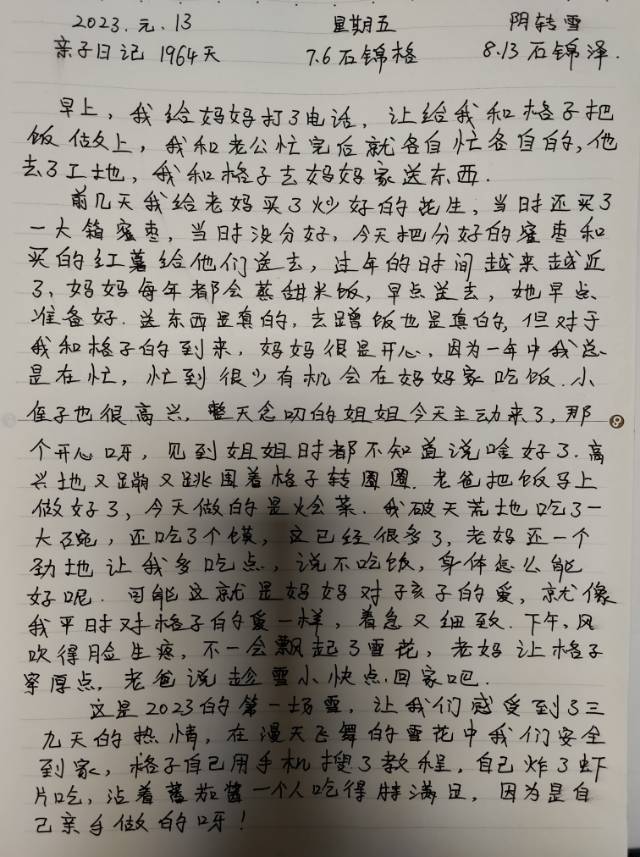 2023.元.13 星期五 阴转雪
亲子日记 1964天 7.6石锦格 8.13石锦泽.
早上，我给妈妈打了电话，让给我和格子把
饭做上，我和老公忙完后就各自忙各自的，他
去了工地，我和格子去妈妈家送东西.
前几天我给老妈买了炒好的花生，当时还买了
一大箱蜜枣，当时没分好，今天把分好的蜜枣和
买的红薯给他们送去，过年的时间越来越近
了，妈妈每年都会蒸甜米饭，早点送去，她早点
准备好.送东西是真的，去蹭饭也是真的，但对于
我和格子的到来，妈妈很是开心，因为一年中我总
是在忙，忙到很少有机会在妈妈家吃饭.小
侄子也很高兴，整天念叨的姐姐今天主动来了，那
个开心呀，见到姐姐时都不知道说啥好了.高
兴地又蹦又跳围着格子转圈圈.老爸把饭马上
做好了，今天做的是烩菜.我破天荒地吃了一
大碗，还吃了个馍，这已经很多了，老妈还一个
劲地让我多吃点，说不吃饭，身体怎么能
好呢.可能这就是妈妈对孩子的爱，就像
我平时对格子的爱一样，着急又细致.下午，风
吹得脸生疼，不一会飘起了雪花，老妈让格子
穿厚点，老爸说趁雪小快点回家吧.
这是2023的第一场雪，让我们感受到了三
九天的热情，在漫天飞舞的雪花中我们安全
到家，格子自己用手机搜了教程，自己炸了虾
片吃，沾着蕃茄酱一个人吃得特满足，因为是自
己亲手做的呀！